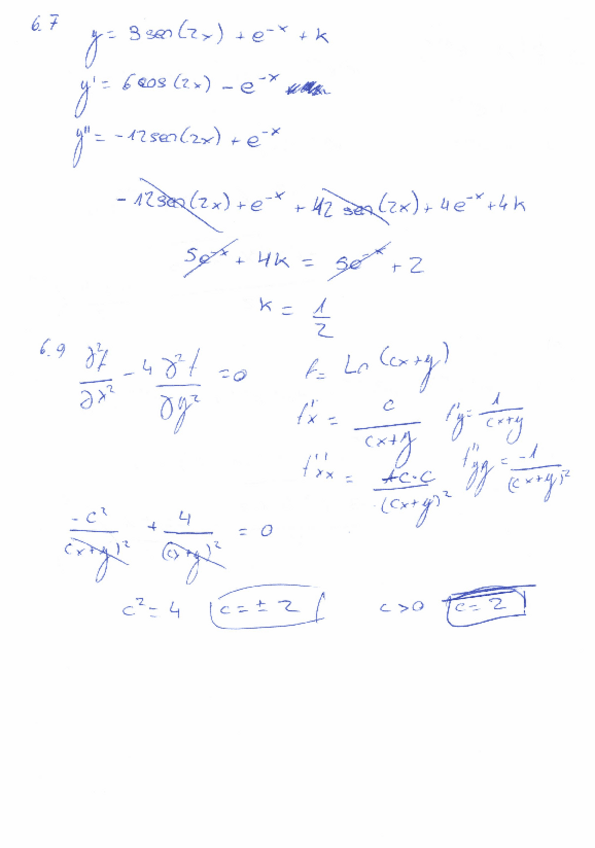 6.7 y = 3 sen(2x) + e^-x + k
y' = 6 cos(2x) - e^-x
y'' = -12 sen(2x) + e^-x
-12 sen(2x) + e^-x + 12 sen(2x) + 4e^-x + 4k
5e^-x + 4k = 5e^-x + 2
k = 1/2
6.9 ∂²f/∂x² - 4 ∂²f/∂y² = 0 f = Ln(cx+y)
f'x = c/(cx+y) f'y = 1/(cx+y)
f''xx = -c·c/(cx+y)² f''yy = -1/(cx+y)²
-c²/(cx+y)² + 4/(cx+y)² = 0
c² = 4 c = ± 2 c > 0 c = 2